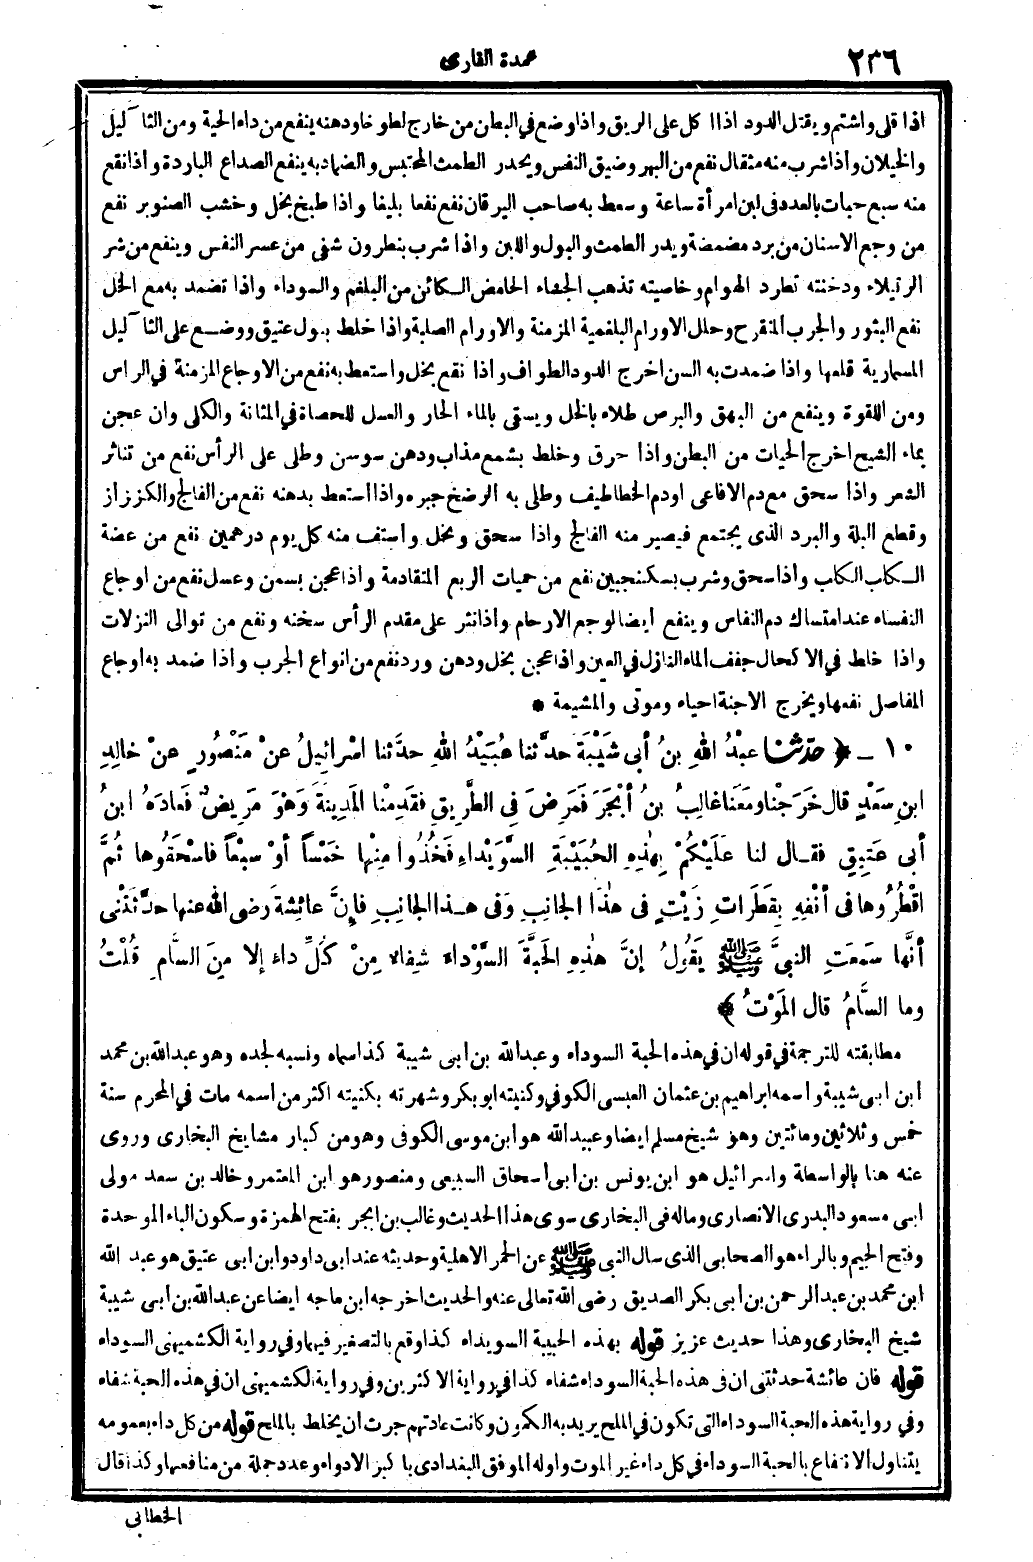 ٢٣٦
عمدة القارى
اذا قلى واشتم ويقتل الدود اذا اكل على الريق واذا وضع في البطن من خارج لطوخا ودهنه ينفع من داء الحية ومن الثآليل
والخيلان واذا شرب منه مثقال نفع من البهر وضيق النفس ويحدر الطمث المحتبس والضماد به ينفع الصداع الباردة واذا نقع
منه سبع حبات بالعدد فى لبن امرأة ساعة وسعط به صاحب اليرقان نفع نفعا بليغا واذا طبخ بخل وخشب الصنوبر نفع
من وجع الاسنان من برد مضمضة ويدر الطمث والبول واللبن واذا شرب بنطرون شفى من عسر النفس وينفع من شر
الرتيلاء ودخنته تطرد الهوام وخاصيته تذهب الجشاء الحامض الكائن من البلغم والسوداء واذا تضمد به مع الخل
نفع البثور والجرب المتقرح وحلل الاورام البلغمية المزمنة والاورام الصلبة واذا خلط ببول عتيق ووضع على الثآليل
المسمارية قلعها واذا ضمدت به السن اخرج الدود الطواف واذا نقع بخل واستعط به نفع من الاوجاع المزمنة في الراس
ومن اللقوة وينفع من البهق والبرص طلاء بالخل ويستى بالماء الحار والعسل للحصاة في المثانة والكلى وان عجن
بماء الشيح اخرج الحيات من البطن واذا حرق وخلط بشمع مذاب ودهن سوسن وطلى على الرأس نفع من تناثر
الشعر واذا سحق مع دم الافاعى اودم الخطاطيف وطلى به الرضخ جبره واذا استعط بدهنه نفع من الفالج والكززاز
وقطع البلة والبرد الذى يجتمع فيصير منه الفالج واذا سحق ونخل واستف منه كل يوم درهمين نفع من عضة
الكلب الكلب واذا سحق وشرب بسكنجبين نفع من حميات الربع المتقادمة واذا عجن بسمن وعسل نفع من اوجاع
النفساء عند امتساك دم النفاس وينفع ايضا لوجع الارحام واذا نثر على مقدم الرأس سخنه ونفع من توالى النزلات
واذا خلط في الاكحال جفف الماء النازل في العين واذا عجن بخل ودهن ورد نفع من انواع الجرب واذا ضمد به اوجاع
المفاصل نفعها ويخرج الاجنة احياء وموتى والمشيمة *
١٠ ـ ﴿ حدثنا عَبْدُ اللهِ بنُ أبي شَيْبَةَ حدَّثنا عُبَيْدُ اللهِ حدَّثنا اسْرائيلُ عنْ مَنْصُورٍ عنْ خالِدِ
ابنِ سَعْدٍ قال خَرَجْنا ومَعَنا غالِبُ بنُ أبْجَرَ فَمَرِضَ فِى الطَّرِيقِ فقَدِمْنا المَدِينةَ وَهْوَ مَرِيضٌ فَعادَهُ ابنُ
أبى عَتِيقٍ فقال لنا عَلَيْكُمْ بِهٰذِهِ الحُبَيْبَةِ السُّوَيْداءِ فَخُذُوا مِنْها خَمْساً أوْ سبْعاً فاسْحَقُوها ثُمَّ
اقْطُرُوها فى أنْفِهِ بِقَطَراتِ زَيْتٍ فى هٰذا الجانِبِ وَفى هٰذا الجانِبِ فإنَّ عائِشةَ رضى الله عنها حدَّثَتْنى
أنَّها سَمَعَتِ النبىَّ ﷺ يَقُولُ إنَّ هٰذِهِ الحَبَّةَ السَّوْداءَ شِفاءٌ مِنْ كُلِّ داءٍ إلا مِنَ السَّامِ قُلْتُ
وما السَّامُ قال المَوْتُ ﴾
مطابقته للترجمة في قوله ان في هذه الحبة السوداء وعبدالله بن ابى شيبة كذا سماه ونسبه لجده وهو عبدالله بن محمد
ابن ابى شيبة واسمه ابراهيم بن عثمان العبسى الكوفي وكنيته ابو بكر وشهرته بكنيته اكثر من اسمه مات في المحرم سنة
خمس وثلاثين ومائتين وهو شيخ مسلم ايضا وعبيد الله هو ابن موسى الكوفى وهو من كبار مشايخ البخارى وروى
عنه هنا بالواسطة واسرائيل هو ابن يونس بن ابى اسحاق السبيعى ومنصور هو ابن المعتمر وخالد بن سعد مولى
ابى مسعود البدرى الانصارى وماله فى البخارى سوى هذا الحديث وغالب بن ابجر بفتح الهمزة وسكون الباء الموحدة
وفتح الجيم وبالراء هو الصحابى الذى سال النبى ﷺ عن الحمر الاهلية وحديثه عند ابى داود وابن ابى عتيق هو عبد الله
ابن محمد بن عبد الرحمن بن أبى بكر الصديق رضى الله تعالى عنه والحديث اخرجه ابن ماجه ايضا عن عبدالله بن ابى شيبة
شيخ البخارى وهذا حديث عزيز قوله بهذه الحبيبة السويداء كذا وقع بالتصغير فيها وفي رواية الكشميهنى السوداء
قوله فان عائشة حدثتنى ان فى هذه الحبة السوداء شفاء كذا في رواية الاكثرين وفي رواية الكشميهنى ان في هذه الحبة شفاء
وفي رواية هذه الحبة السوداء التى تكون في الملح يريد به الكمون وكانت عادتهم جرت ان يخلط بالملح قوله من كل داء بعمومه
يتناول الانتفاع بالحبة السوداء في كل داء غير الموت واوله الموفق البغدادى باكبر الادواء وعدد جملة من منافعها وكذا قال
الخطابى